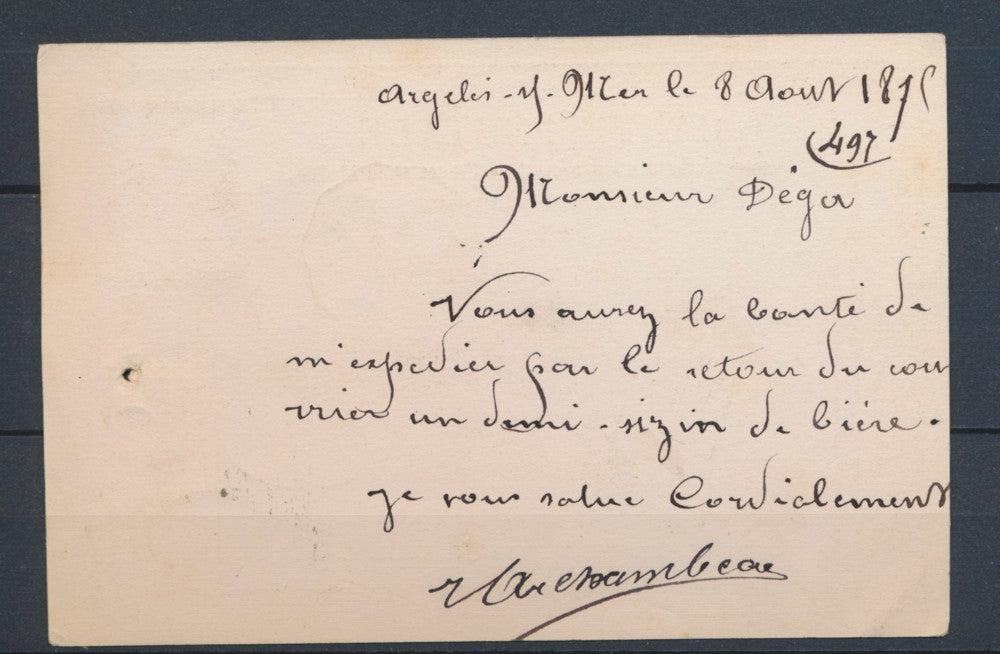 Argelès-s/-Mer le 8 Aout 1875
497
Monsieur Déga
Vous aurez la bonté de
m'expedier par le retour du cou
rrier un demi-sizin de bière.
je vous salue Cordialement
Archambeau